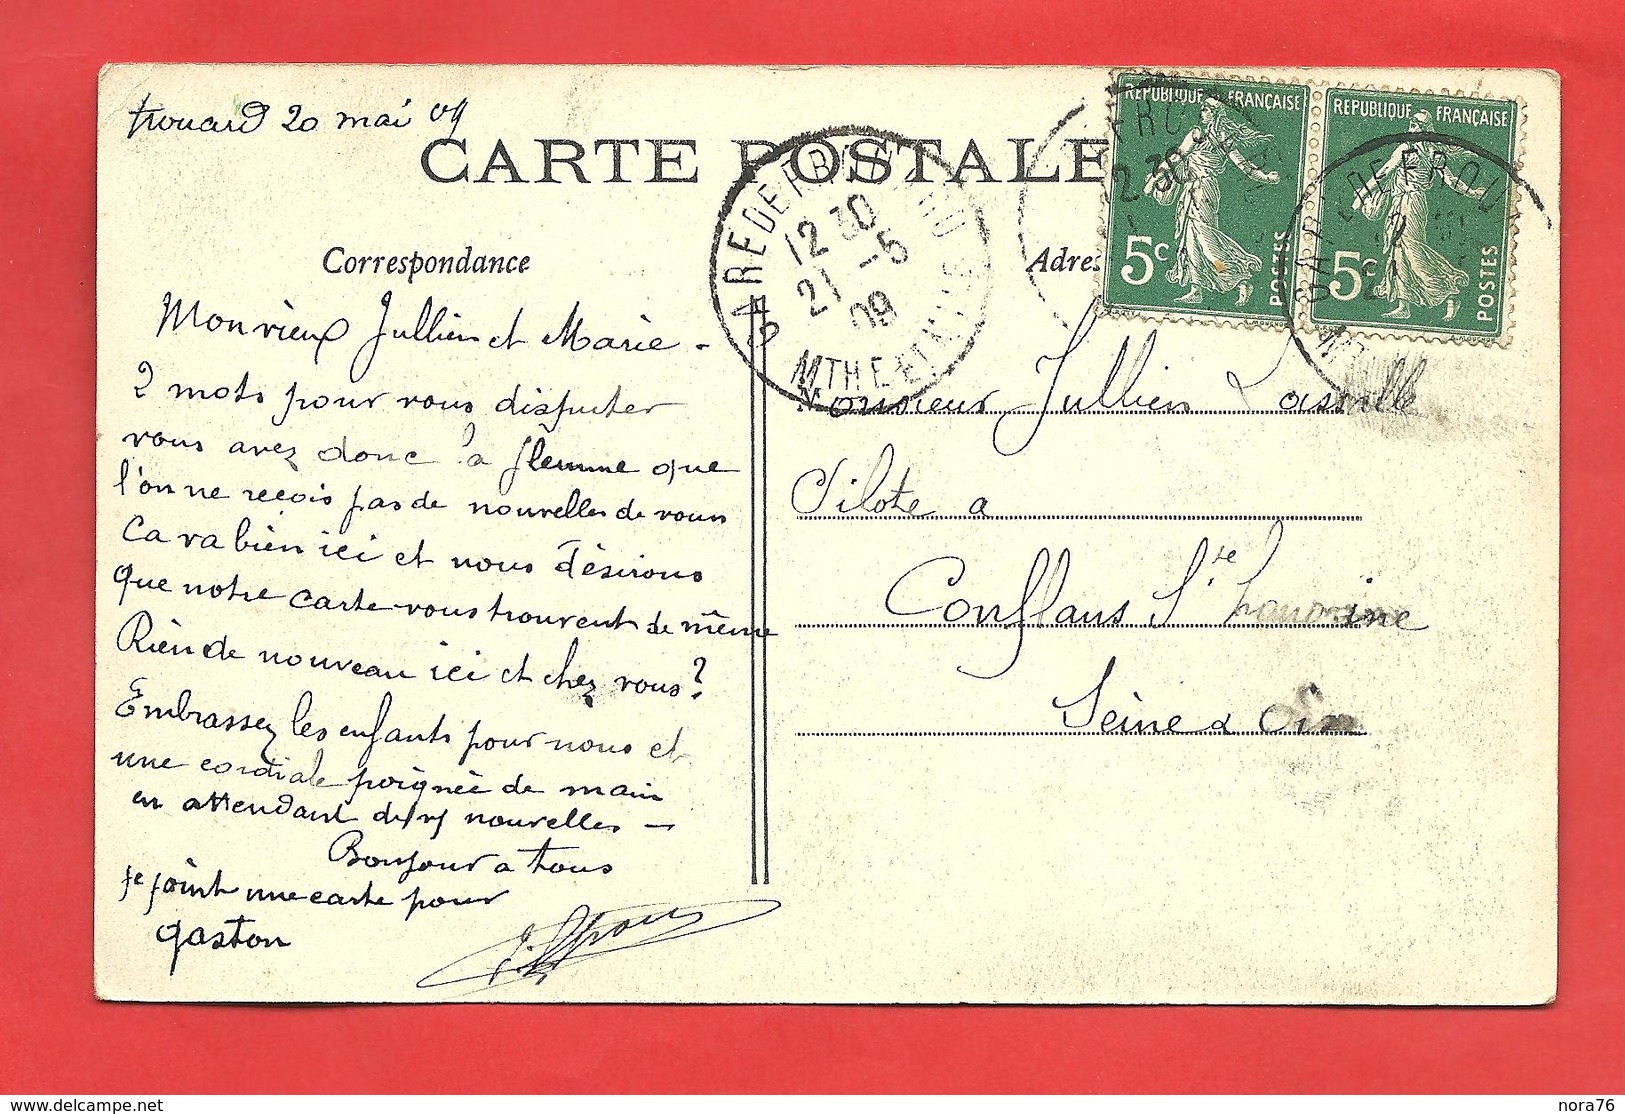 Frouard 20 mai 09
CARTE POSTALE
Correspondance
Mon vieux Jullien et Marie -
2 mots pour vous disputer
vous avez donc la flemme que
l'on ne reçois pas de nouvelles de vous
Ca va bien ici et nous désirons
que notre carte vous trouvent de même
Rien de nouveau ici et chez vous?
Embrassez les enfants pour nous et
une cordiale poignée de main
en attendant de vs nouvelles —
Bonjour a tous
je joint une carte pour
gaston
GARE DE FROUARD
12 30
21 -5
09
MTHE ET MLLE
REPUBLIQUE FRANÇAISE
5c
POSTES
REPUBLIQUE FRANÇAISE
5c
POSTES
GARE DE FROU
Adres
Monsieur Jullien
Pilote a
Conflans Ste Honorine
Seine & Oise
nora76